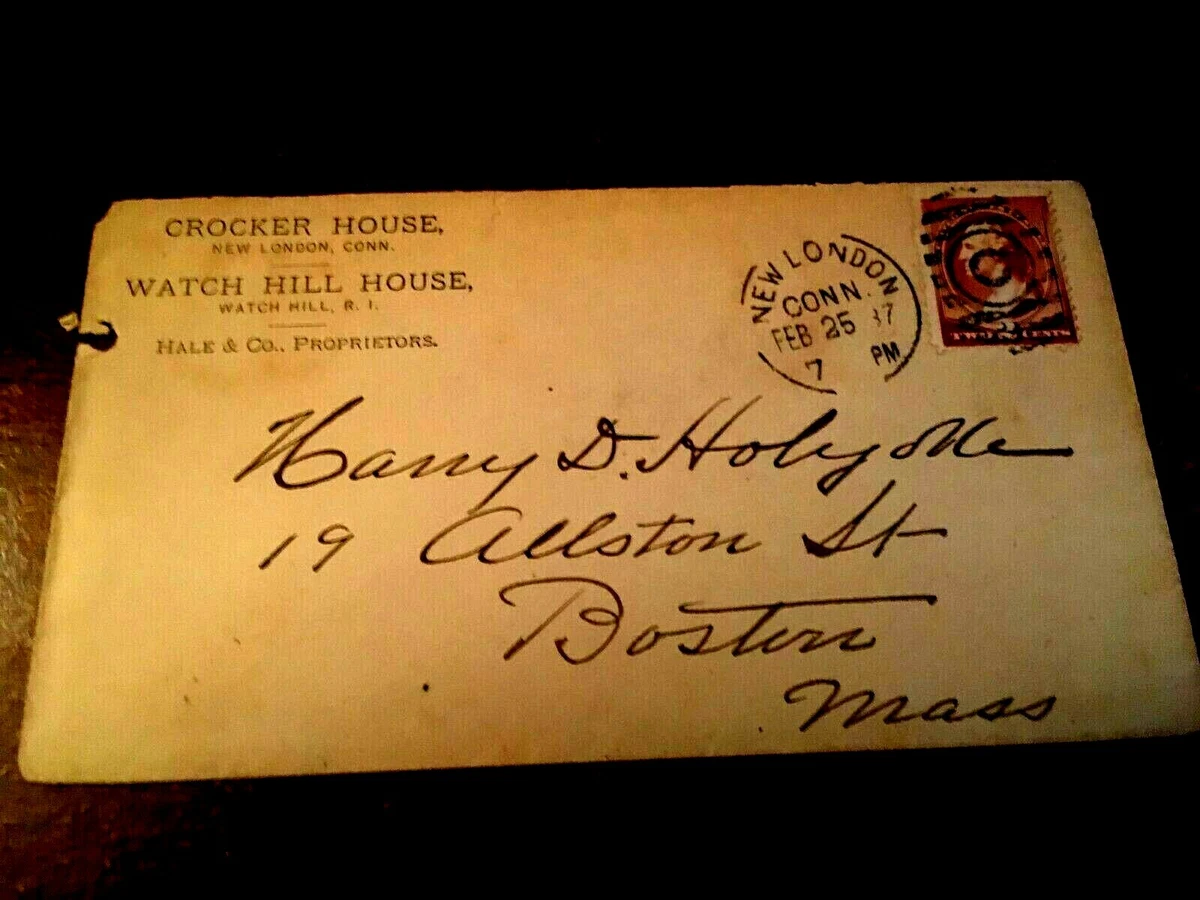 CROCKER HOUSE,
NEW LONDON, CONN.
WATCH HILL HOUSE,
WATCH HILL, R. I.
HALE & CO., PROPRIETORS.
NEW LONDON
CONN.
FEB 25 87
7 PM
C
TWO CENTS
Harry D. Holyoke
19 Allston St
Boston
Mass